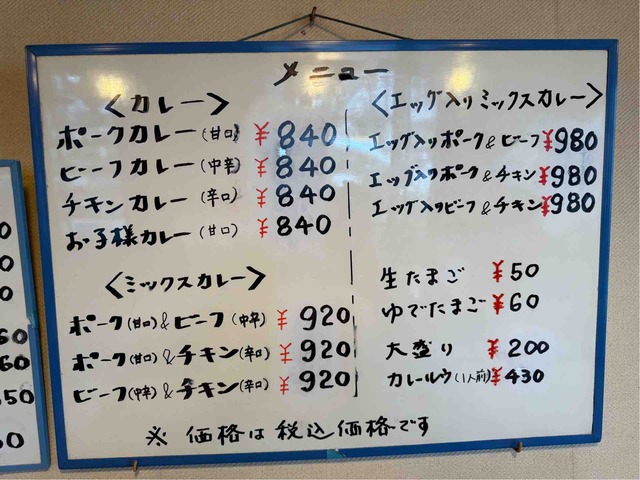 メニュー
<カレー>
ポークカレー(甘口) ¥840
ビーフカレー(中辛) ¥840
チキンカレー(辛口) ¥840
お子様カレー(甘口) ¥840
<ミックスカレー>
ポーク(甘口)&ビーフ(中辛) ¥920
ポーク(甘口)&チキン(辛口) ¥920
ビーフ(中辛)&チキン(辛口) ¥920
<エッグ入りミックスカレー>
エッグ入りポーク&ビーフ ¥980
エッグ入りポーク&チキン ¥980
エッグ入りビーフ&チキン ¥980
生たまご ¥50
ゆでたまご ¥60
大盛り ¥200
カレールウ(1人前) ¥430
※ 価格は税込価格です